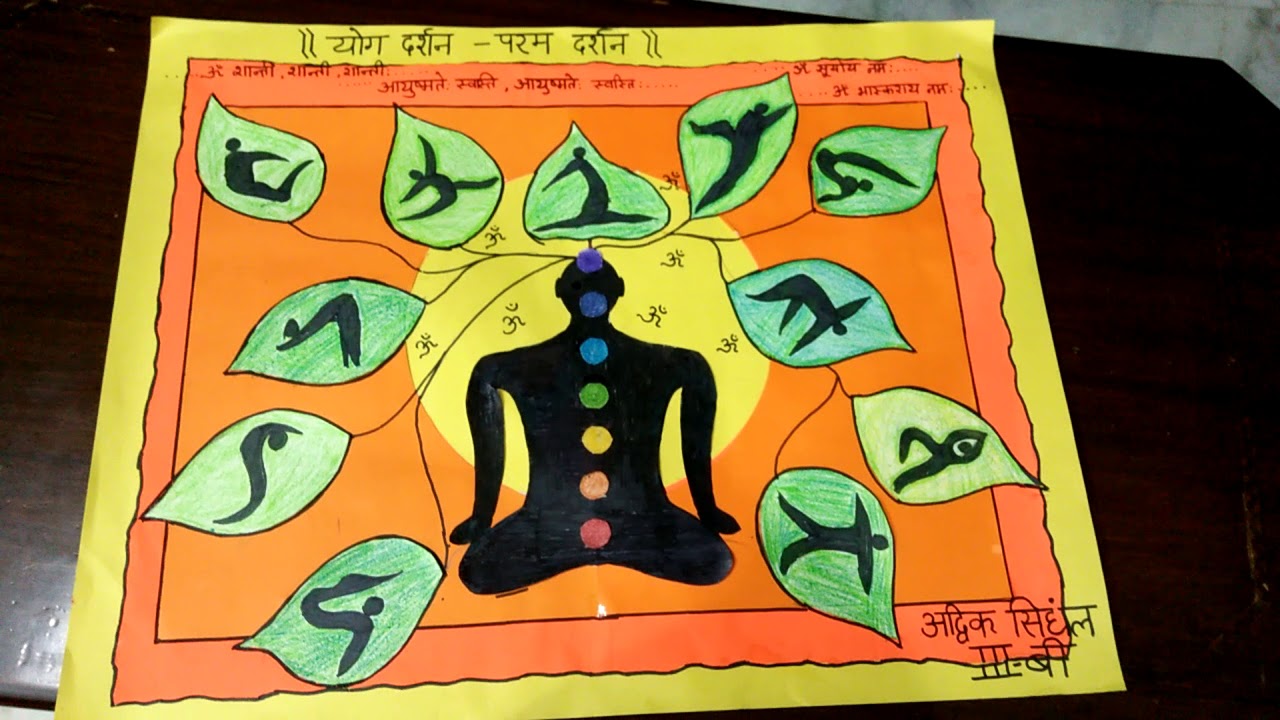 ॥ योग दर्शन - परम दर्शन ॥
ॐ शान्ती, शान्ती, शान्ती:
ॐ सूर्याय नमः
आयुष्मते: स्वस्ति, आयुष्मते: स्वस्ति:
ॐ भास्कराय नमः
ॐ
ॐ
ॐ
ॐ
ॐ
ॐ
ॐ
अद्विक सिघंल
III-बी